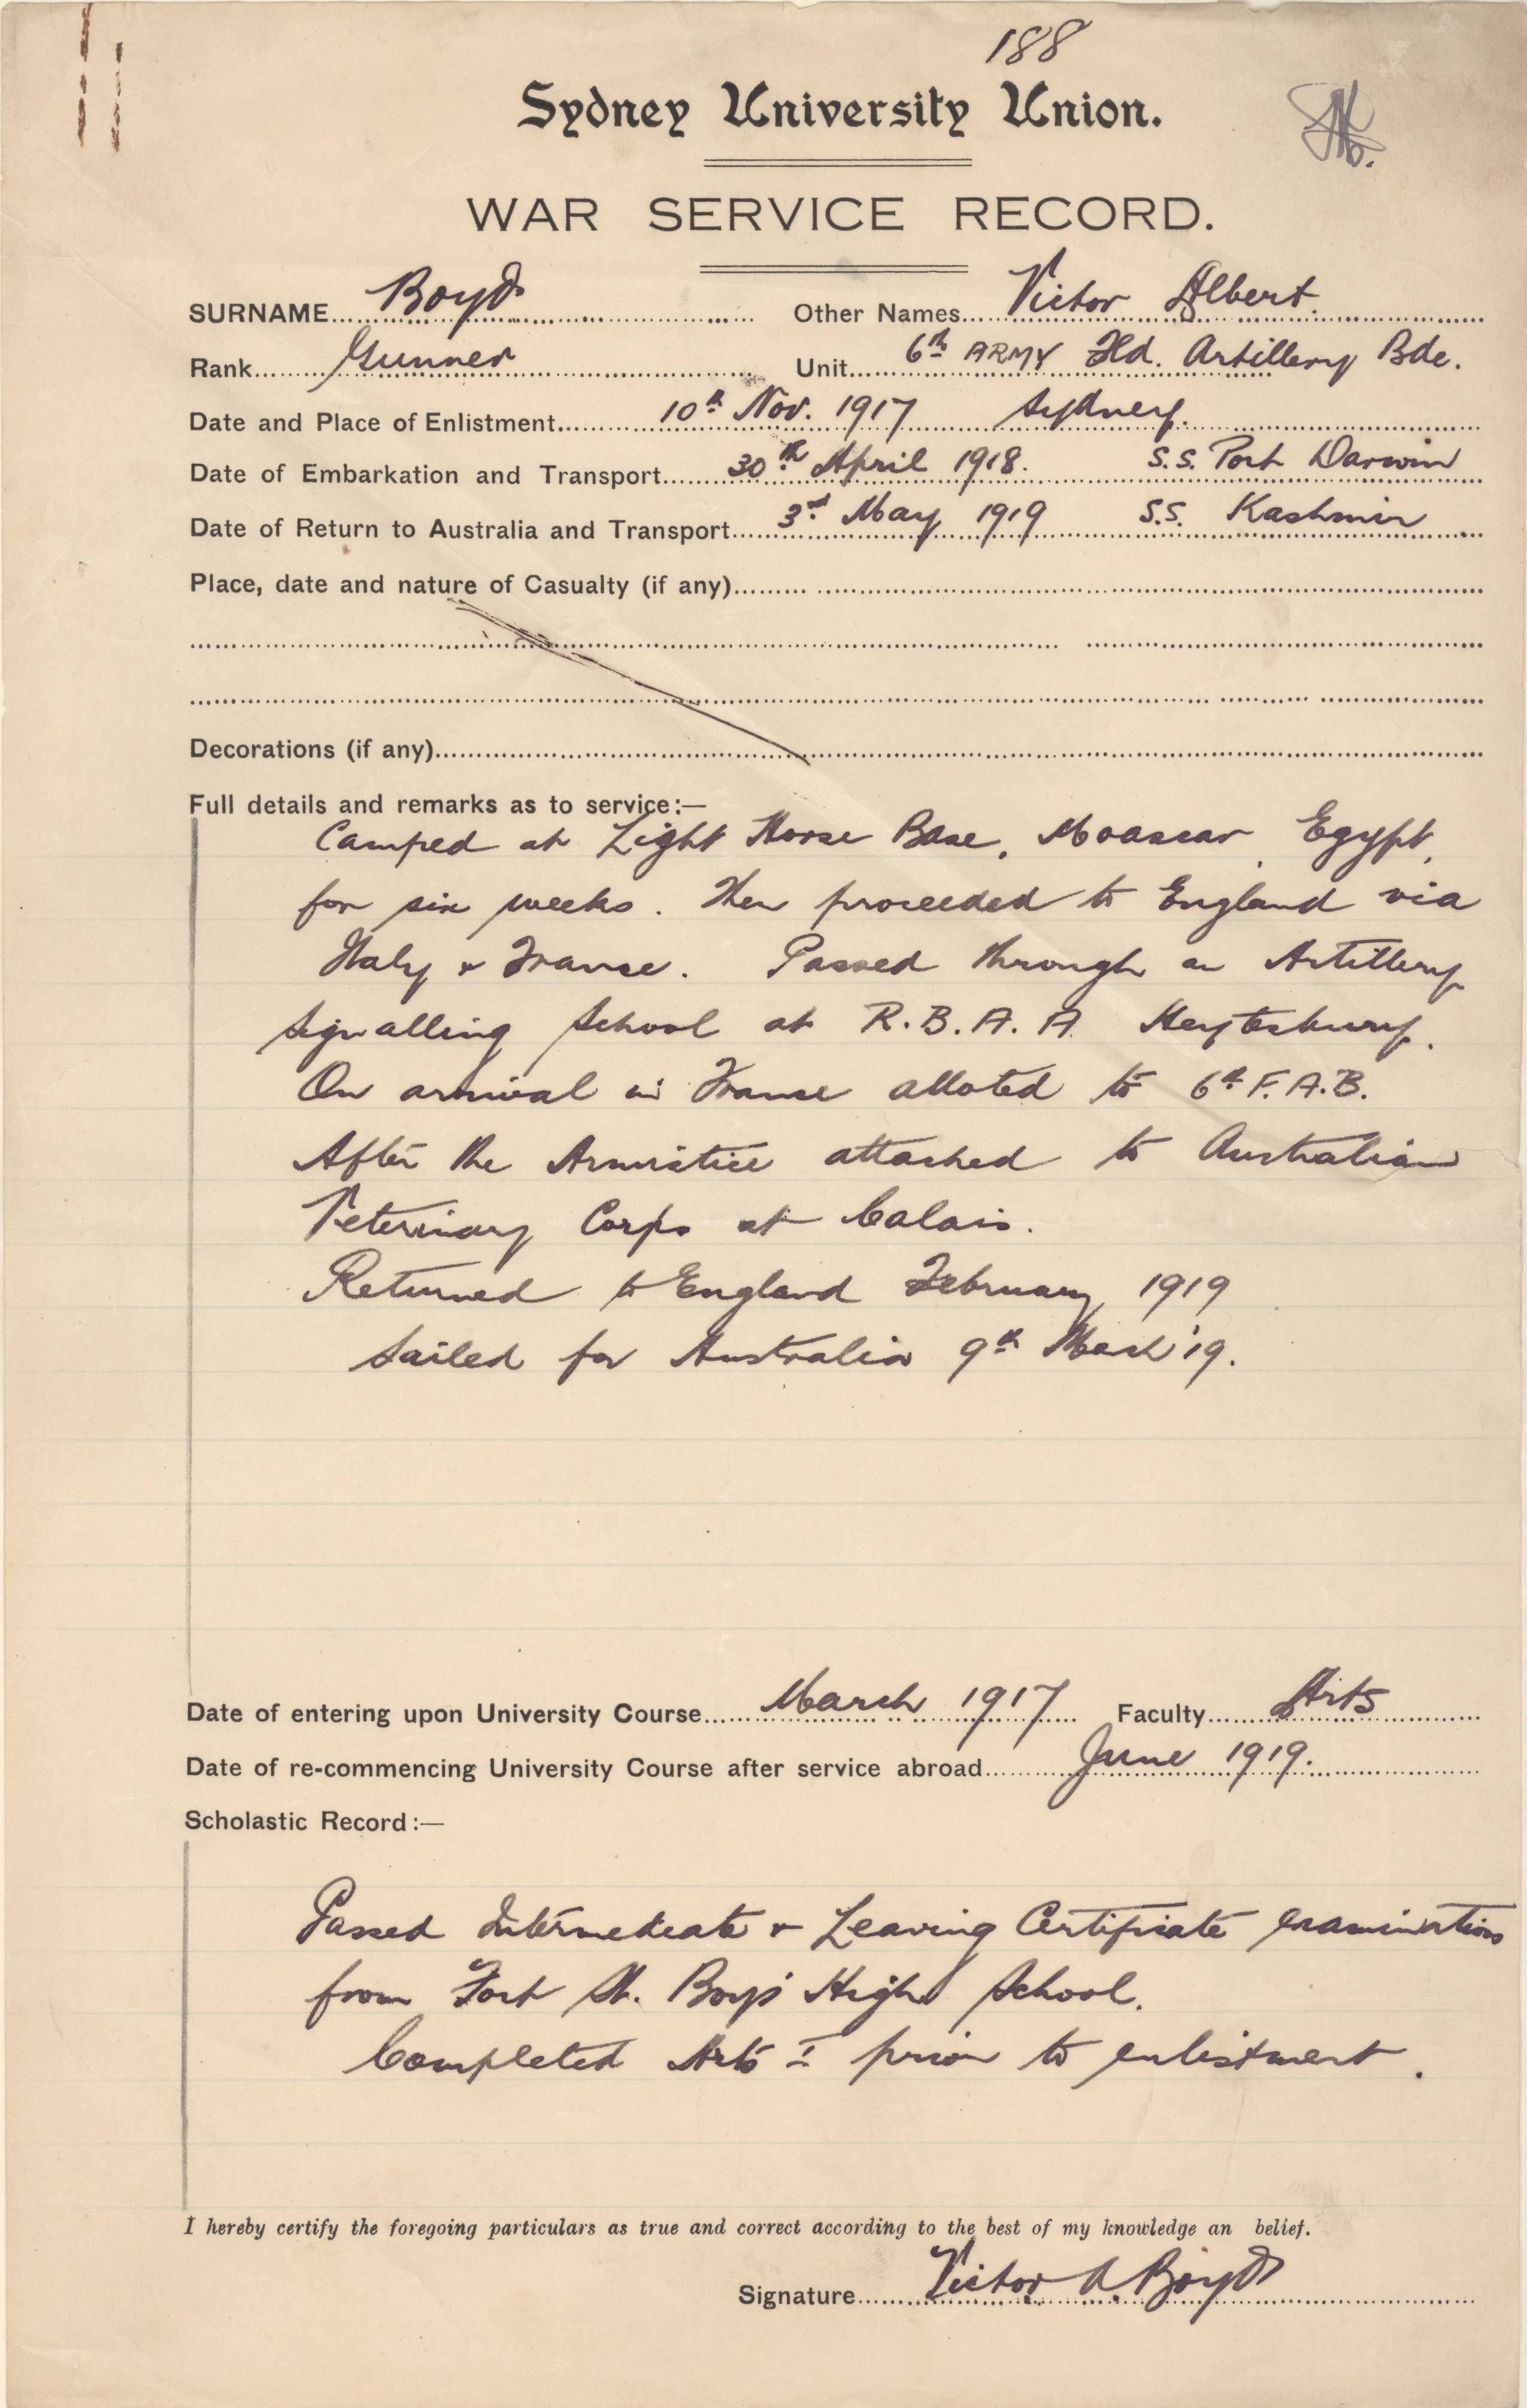 188
Sydney University Union.
WAR SERVICE RECORD.
SURNAME Boyd Other Names Victor Albert
Rank Gunner Unit 6th ARMY Fld. Artillery Bde.
Date and Place of Enlistment 10th Nov. 1917 Sydney.
Date of Embarkation and Transport 30th April 1918. S.S. Port Darwin
Date of Return to Australia and Transport 3rd May 1919 S.S. Kashmir
Place, date and nature of Casualty (if any)
Decorations (if any)
Full details and remarks as to service:—
Camped at Light Horse Base, Moascar, Egypt,
for six weeks. Then proceeded to England via
Italy & France. Passed through an Artillery
Signalling School at R.B.A.A Heytesbury.
On arrival in France alloted to 6th F.A.B.
After the Armistice attached to Australian
Veterinary Corps at Calais.
Returned to England February 1919
Sailed for Australia 9th March '19.
Date of entering upon University Course March 1917 Faculty Arts
Date of re-commencing University Course after service abroad June 1919.
Scholastic Record:—
Passed Intermediate & Leaving Certificate examinations
from Fort St. Boys' High School.
Completed Arts I prior to enlistment.
I hereby certify the foregoing particulars as true and correct according to the best of my knowledge an belief.
Signature Victor A. Boyd